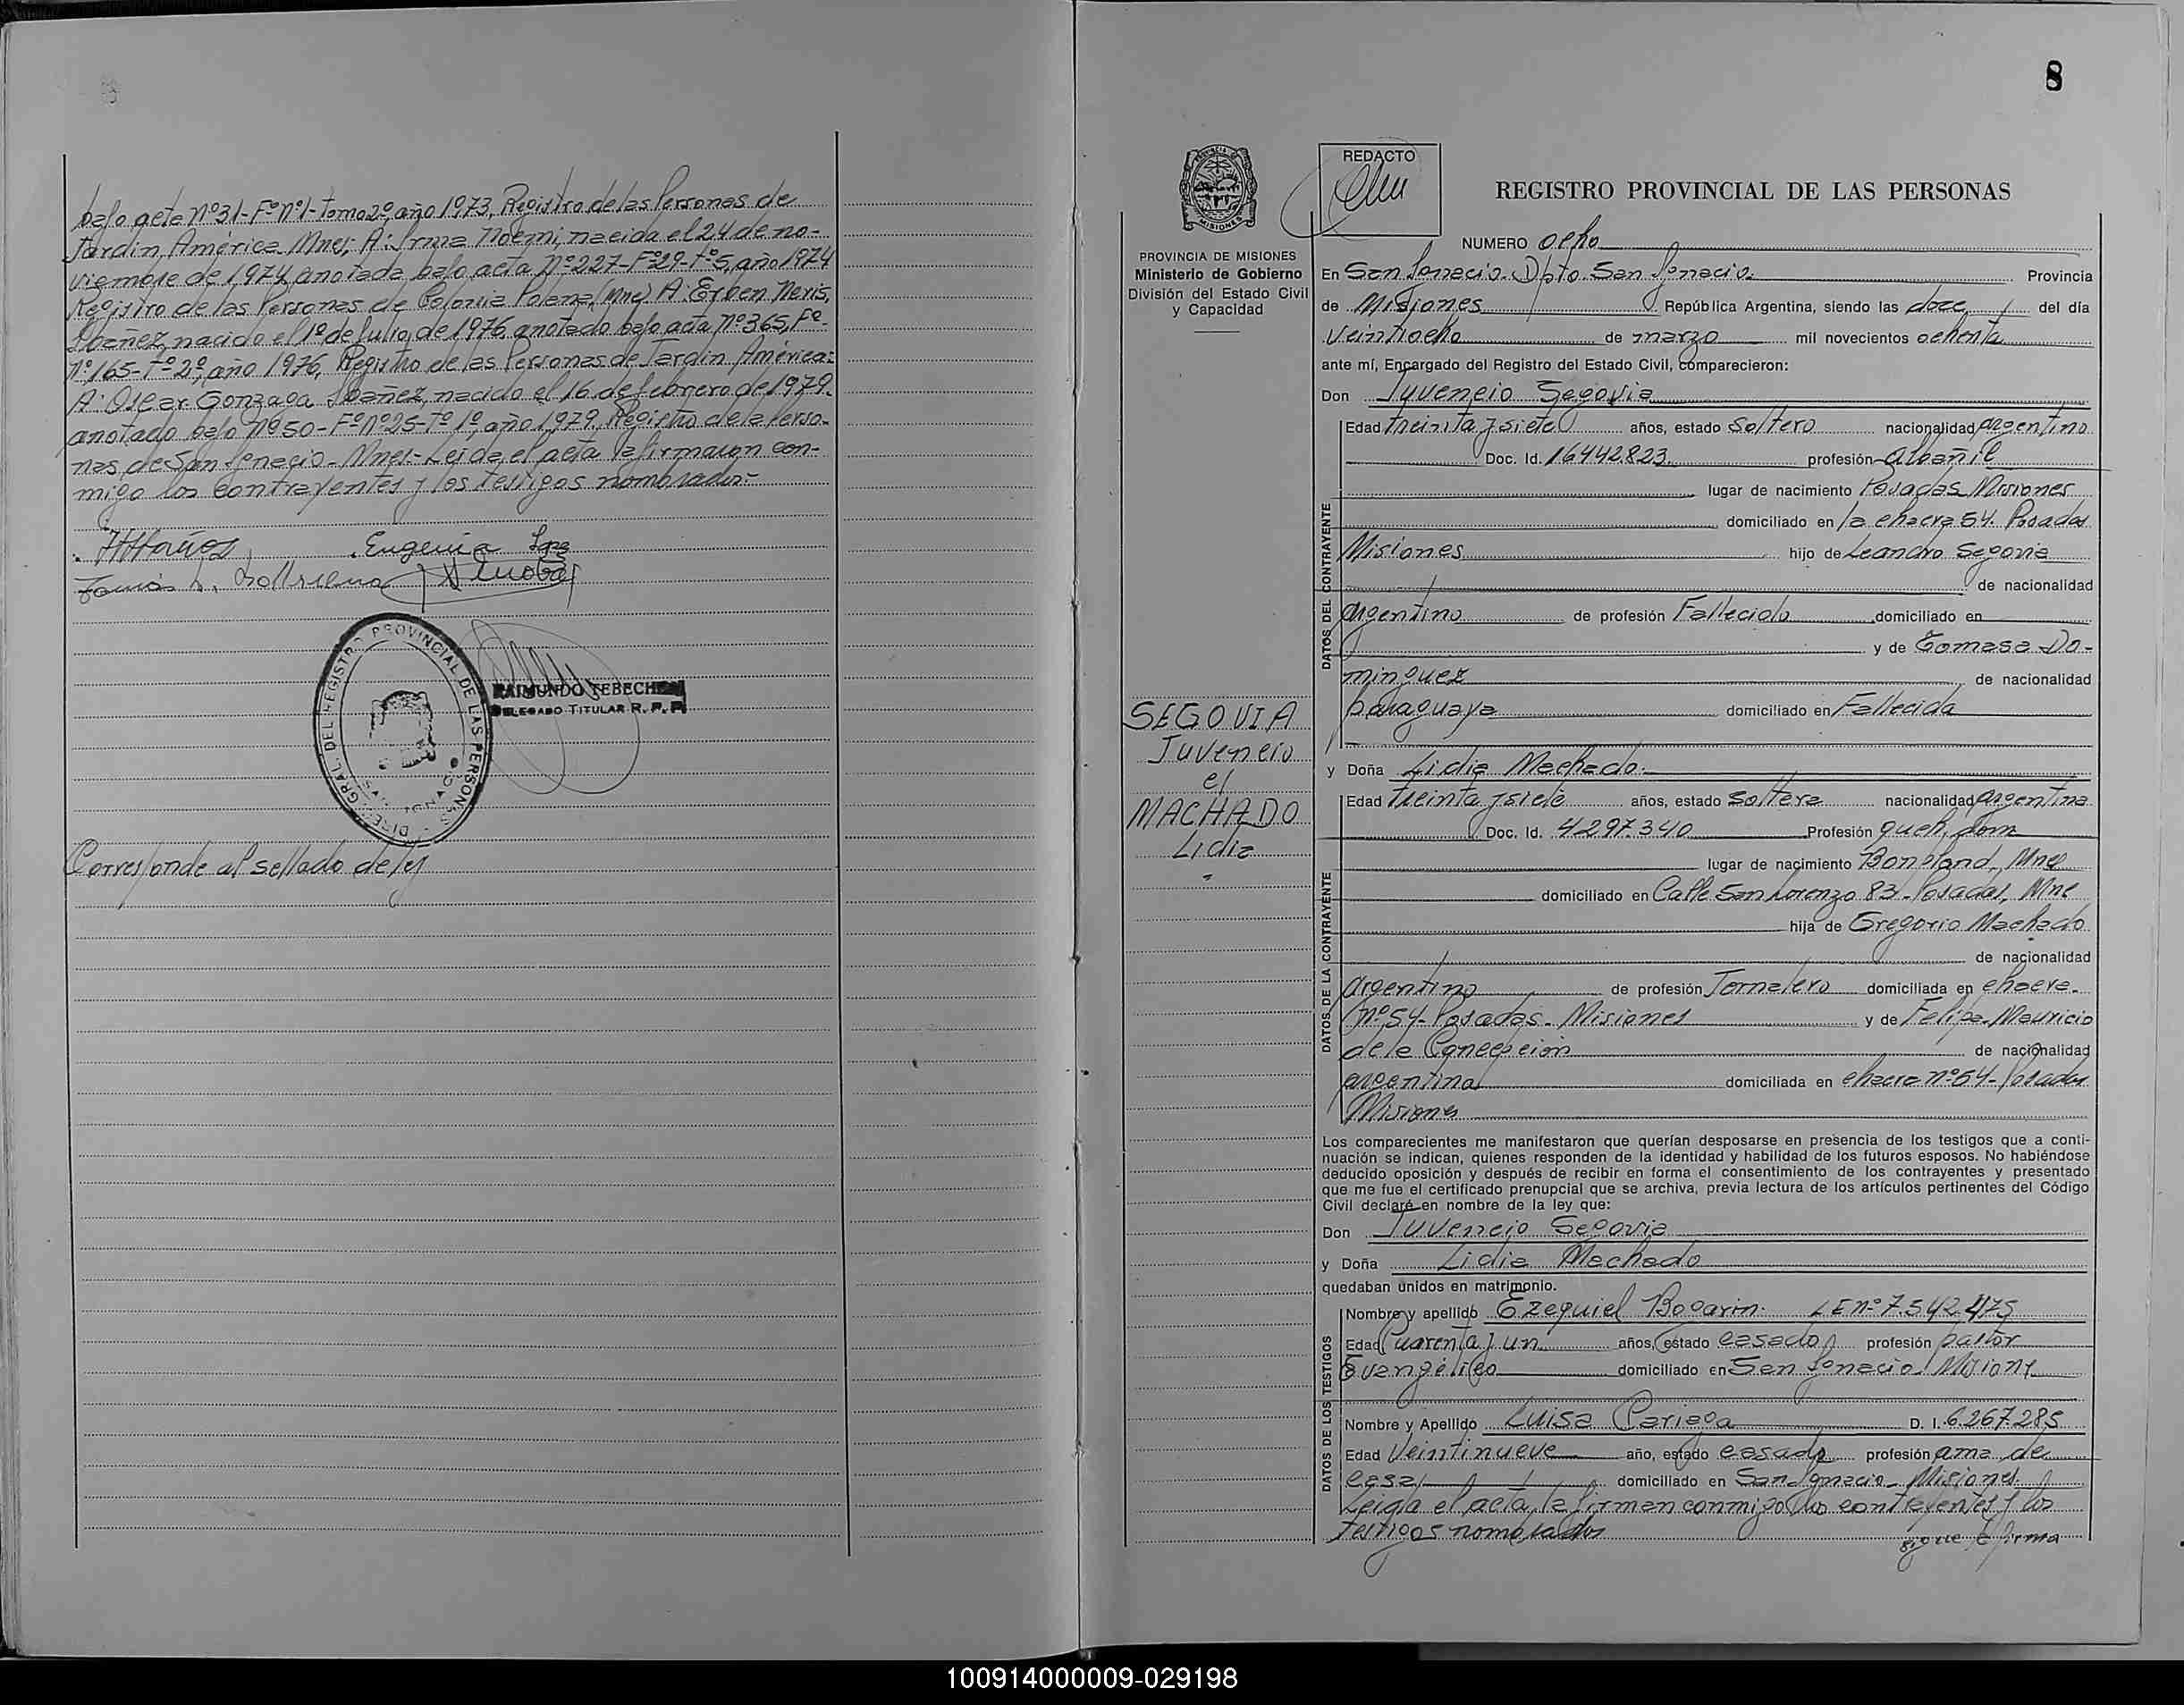 bajo acta Nº31-Fº Nº1-tomo 2º, año 1973, Registro de las Personas de
Jardín América. Mnes; A: Irma Noemi, nacida el 24 de no-
viembre de 1974, anotada bajo acta Nº227-Fº29-Tº5, año 1974
Registro de las Personas de Colonia Polana (Mnes) A: Erben Neris,
Ibañez, nacido el 1º de Julio de 1976, anotado bajo acta Nº365, Fº-
Nº165-Tº2º, año 1976, Registro de las Personas de Jardín América:
A: Oscar Gonzaga Ibañez, nacido el 16 de febrero de 1979.
anotado bajo Nº50-Fº Nº25-Tº1º, año 1979. Registro de la Perso-
nas, de San Ignacio-Mnes.- Leída el acta la firmaron con-
migo los contrayentes y los testigos nombrados:-
Eugenia
PROVINCIAL DE LAS PERSONAS
DIREC. GRAL. DEL REGISTRO
SAN IGNACIO
RAIMUNDO TEBECHE
DELEGADO TITULAR R. P. P.
Corresponde al sellado de ley
8
PROVINCIA DE MISIONES
Ministerio de Gobierno
División del Estado Civil
y Capacidad
SEGOVIA
Juvencio
el
MACHADO
Lidia
REDACTO
REGISTRO PROVINCIAL DE LAS PERSONAS
NUMERO ocho
En San Ignacio. Dpto. San Ignacio. Provincia
de Misiones República Argentina, siendo las doce del día
veintiocho de marzo mil novecientos ochenta
ante mí, Encargado del Registro del Estado Civil, comparecieron:
Don Juvencio Segovia
DATOS DEL CONTRAYENTE
Edad treinta y siete años, estado soltero nacionalidad argentino
Doc. Id. 16442.823 profesión albañil
lugar de nacimiento Posadas Misiones
domiciliado en la chacra 54. Posadas
Misiones hijo de Leandro Segovia
de nacionalidad
argentino de profesión Fallecido domiciliado en
y de Tomasa Do-
minguez de nacionalidad
paraguaya domiciliado en Fallecida
y Doña Lidia Machado.
DATOS DE LA CONTRAYENTE
Edad treinta y siete años, estado soltera nacionalidad argentina
Doc. Id. 4297.340 Profesión queh. dom
lugar de nacimiento Bonpland, Mnes
domiciliado en Calle San Lorenzo 83-Posadas, Mne
hija de Gregorio Machado
de nacionalidad
argentino de profesión Jornalero domiciliada en chacra-
Nº54-Posadas-Misiones y de Felipa Mauricio
de la Concepción de nacionalidad
argentina domiciliada en chacra nº54-Posadas
Misiones
Los comparecientes me manifestaron que querían desposarse en presencia de los testigos que a conti-
nuación se indican, quienes responden de la identidad y habilidad de los futuros esposos. No habiéndose
deducido oposición y después de recibir en forma el consentimiento de los contrayentes y presentado
que me fue el certificado prenupcial que se archiva, previa lectura de los artículos pertinentes del Código
Civil declaré en nombre de la ley que:
Don Juvencio Segovia
y Doña Lidia Machado
quedaban unidos en matrimonio.
DATOS DE LOS TESTIGOS
Nombre y apellido Ezequiel Bogarin. LE Nº 7.542.475
Edad Cuarenta y un años, estado casado profesión pastor
Evangélico domiciliado en San Ignacio Misiones
Nombre y Apellido Luisa Cariaga D. I. 6.267.285
Edad Veintinueve año, estado casada profesión ama de
casa domiciliado en San Ignacio-Misiones.
Leída el acta, la firman conmigo los contrayentes y los
testigos nombrados
sigue la firma
100914000009-029198